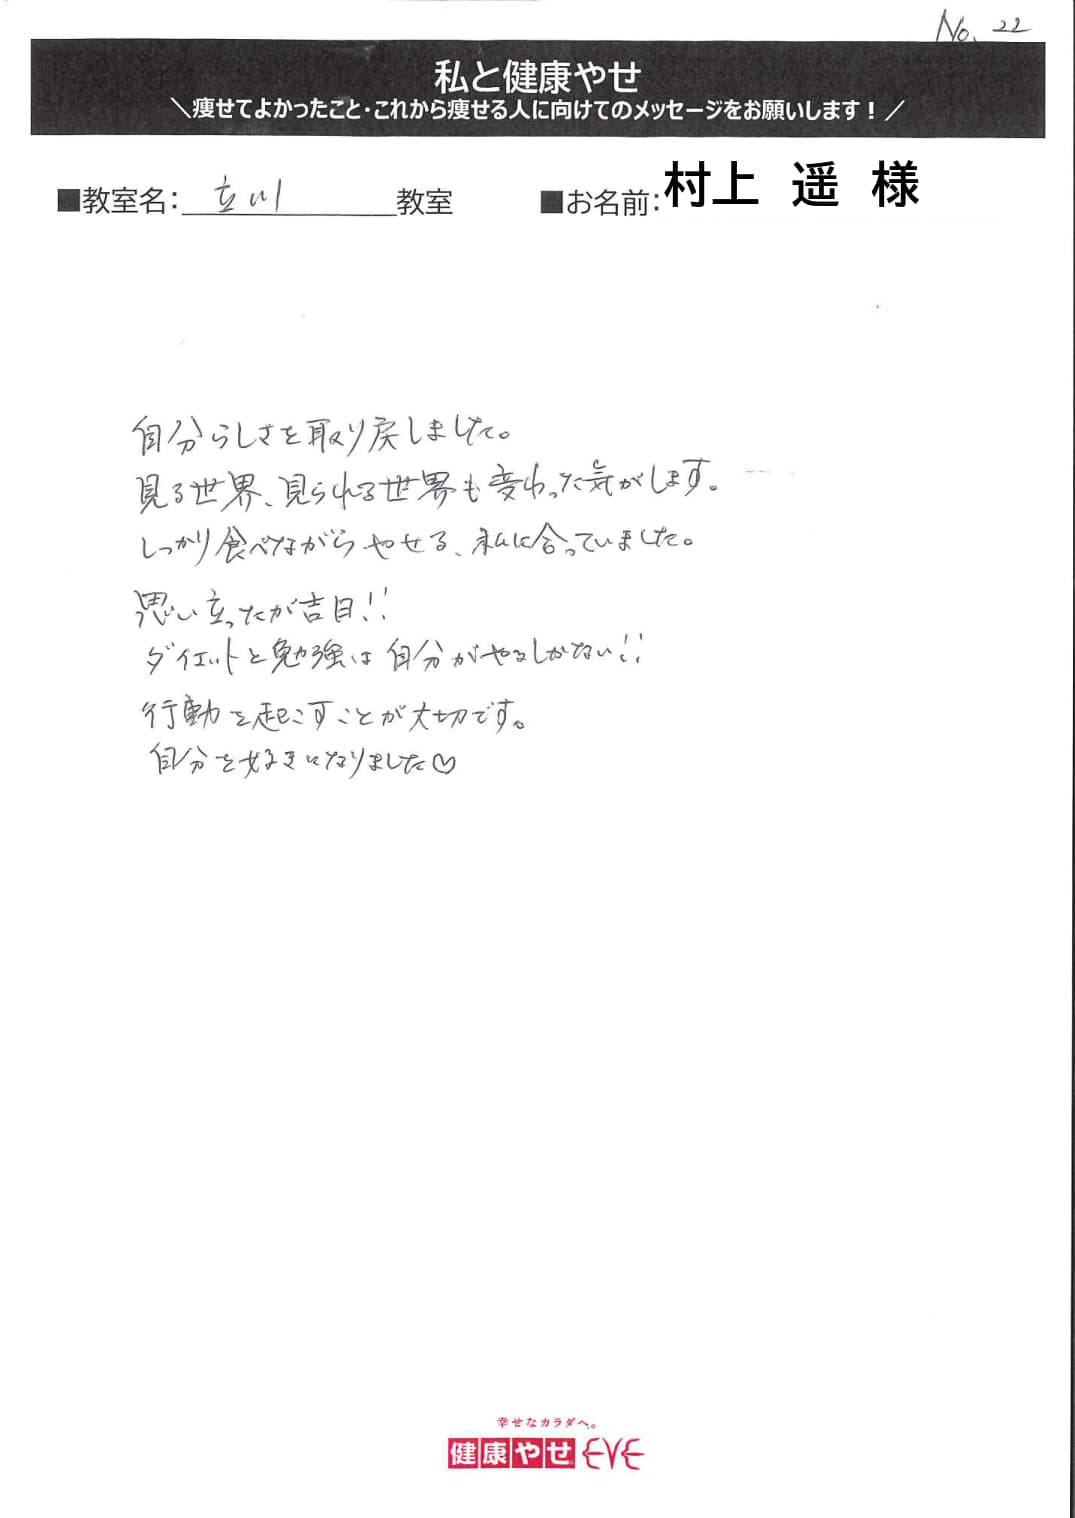 No. 22
私と健康やせ
＼痩せてよかったこと・これから痩せる人に向けてのメッセージをお願いします！／
■教室名：立川教室 ■お名前：村上 遥 様
自分らしさを取り戻しました。
見る世界、見られる世界も変わった気がします。
しっかり食べながらやせる、私に合っていました。
思い立ったが吉日!!
ダイエットと勉強は自分がやるしかない!!
行動を起こすことが大切です。
自分を好きになりました♡
幸せなカラダへ。
健康やせEVE